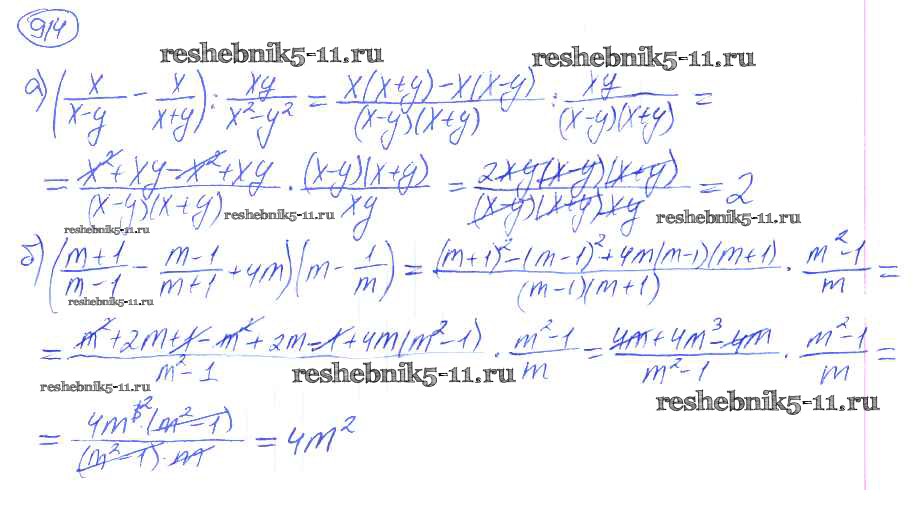 914
reshebnik5-11.ru reshebnik5-11.ru
а) (x/(x-y) - x/(x+y)) : xy/(x²-y²) = (x(x+y)-x(x-y))/((x-y)(x+y)) : xy/((x-y)(x+y)) =
= (x²+xy-x²+xy)/((x-y)(x+y)) · ((x-y)(x+y))/xy = (2xy(x-y)(x+y))/((x-y)(x+y)xy) = 2
reshebnik5-11.ru reshebnik5-11.ru reshebnik5-11.ru
б) ((m+1)/(m-1) - (m-1)/(m+1) + 4m)(m - 1/m) = ((m+1)²-(m-1)²+4m(m-1)(m+1))/((m-1)(m+1)) · (m²-1)/m =
reshebnik5-11.ru
= (m²+2m+1-m²+2m-1+4m(m²-1))/(m²-1) · (m²-1)/m = (4m+4m³-4m)/(m²-1) · (m²-1)/m =
reshebnik5-11.ru reshebnik5-11.ru reshebnik5-11.ru
= (4m³²·(m²-1))/((m²-1)·m) = 4m²